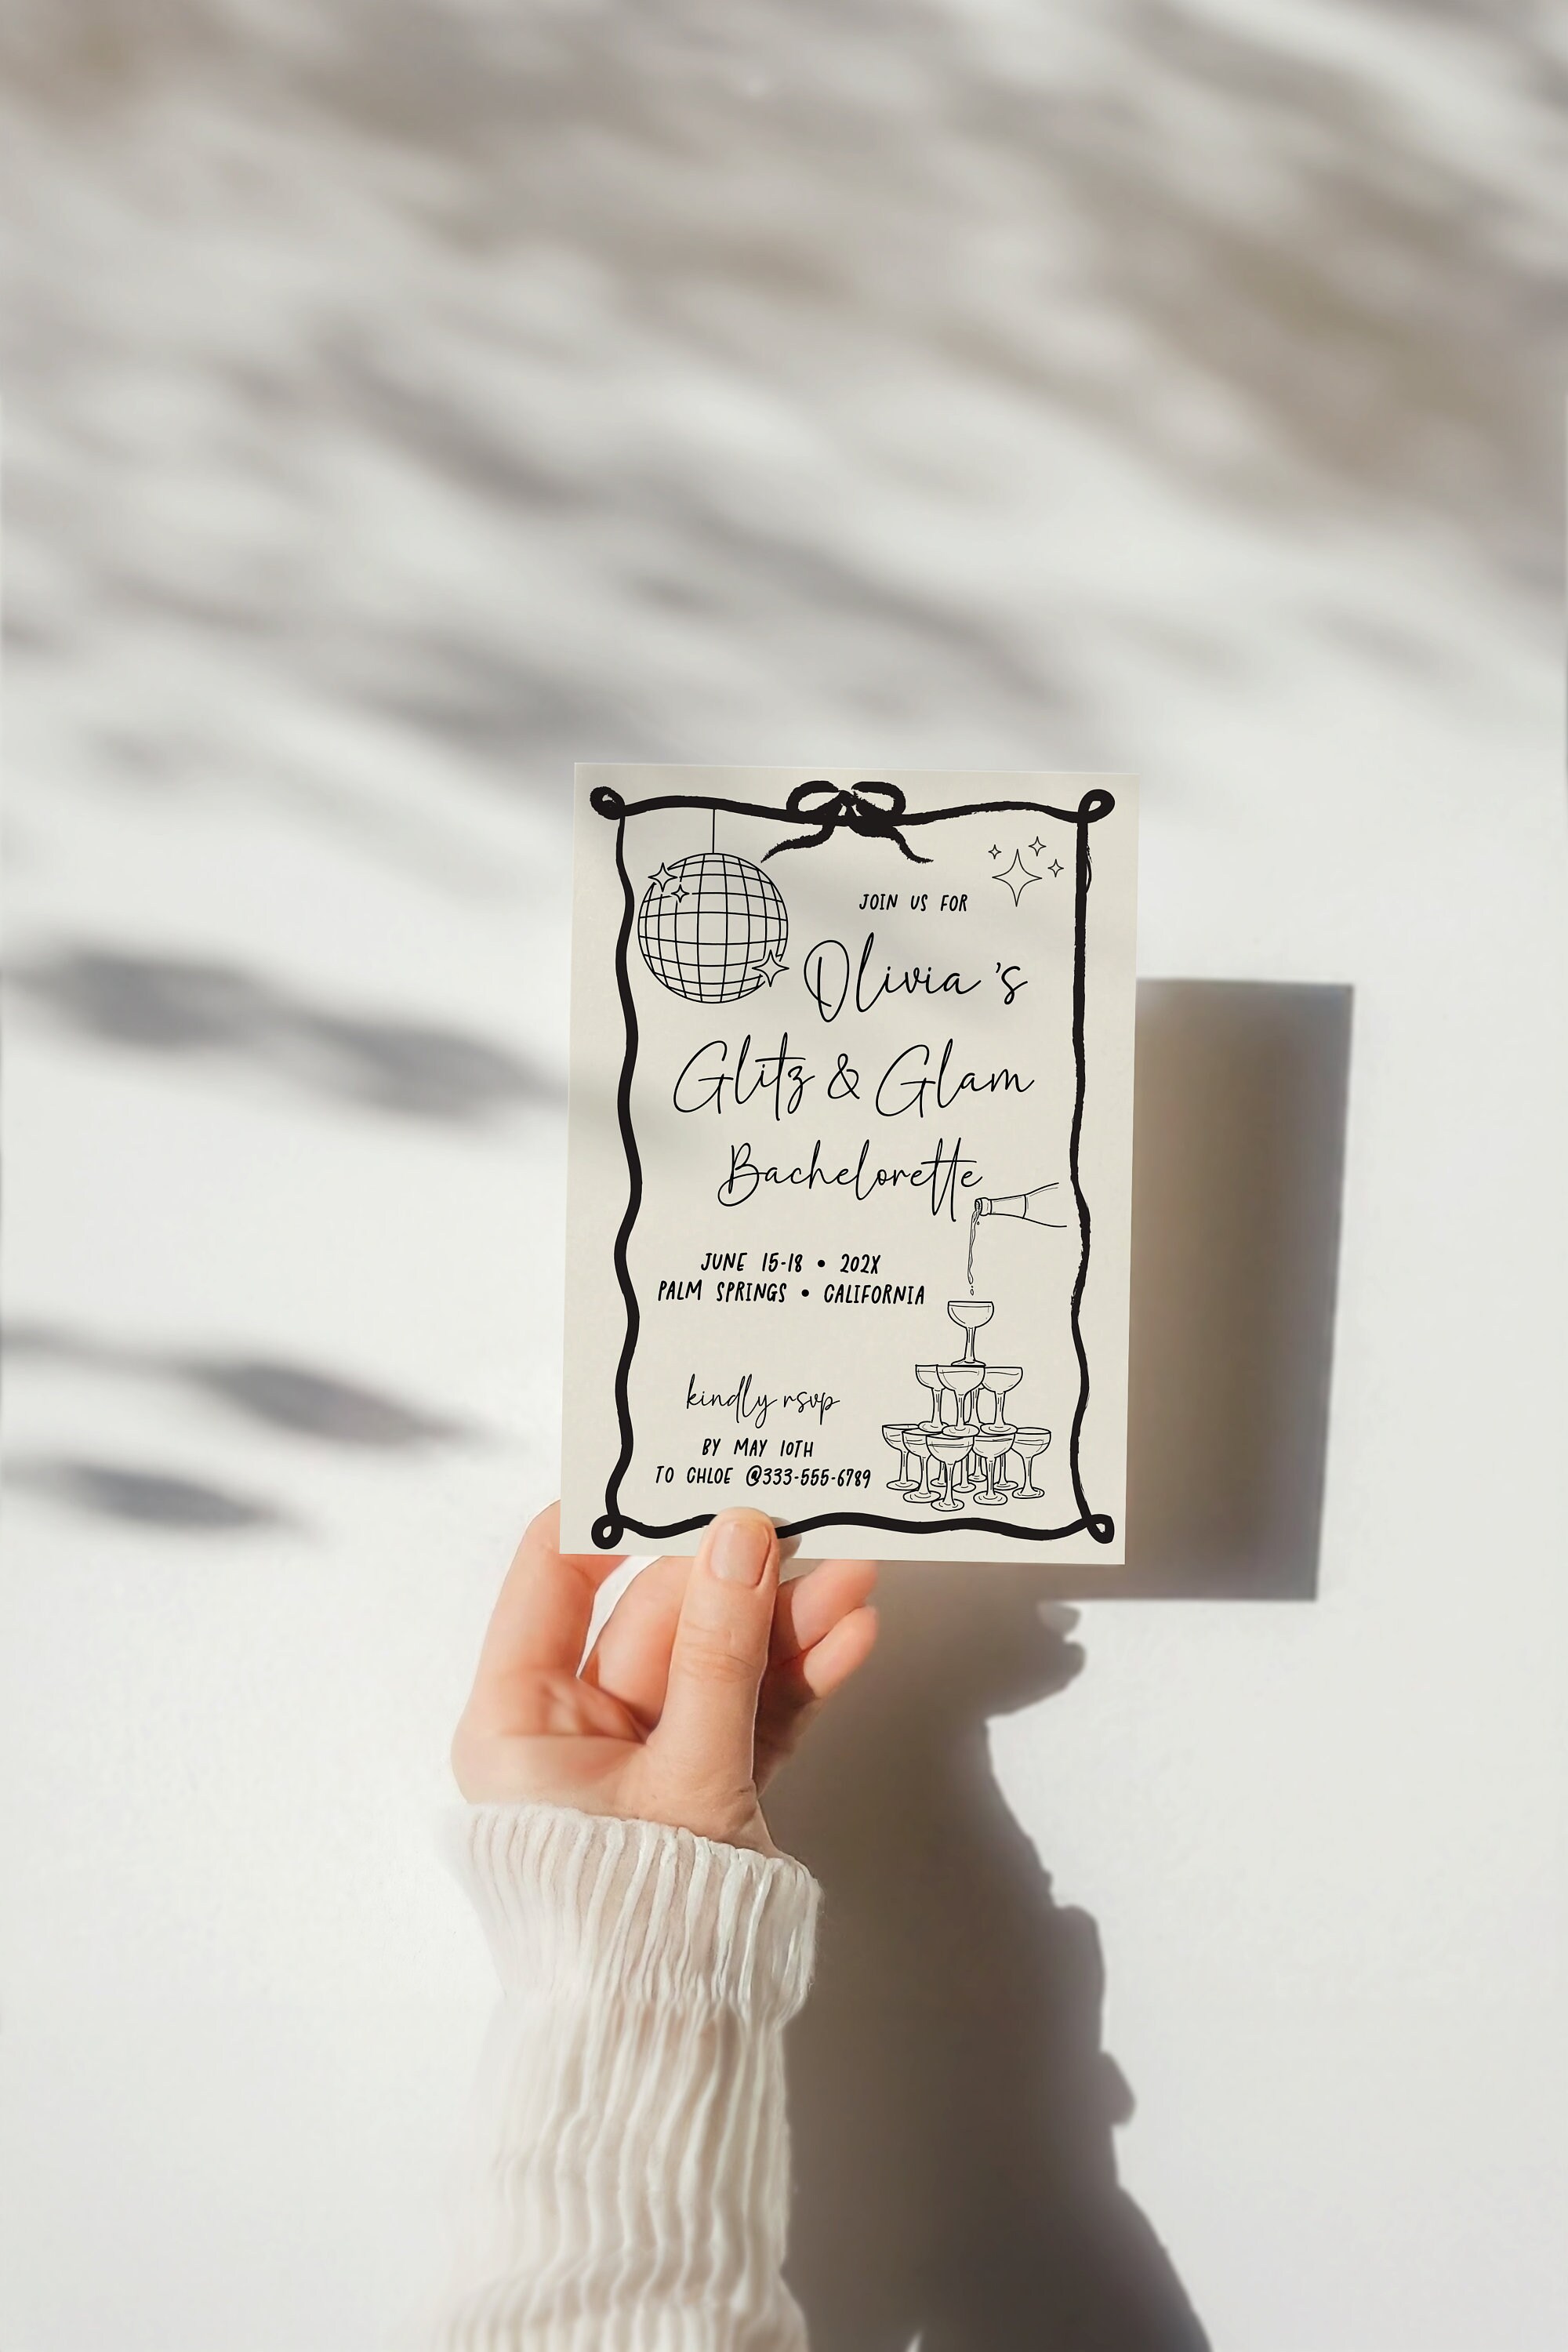 JOIN US FOR
Olivia's
Glitz & Glam
Bachelorette
JUNE 15-18 • 202X
PALM SPRINGS • CALIFORNIA
kindly rsvp
BY MAY 10TH
TO CHLOE @333-555-6789